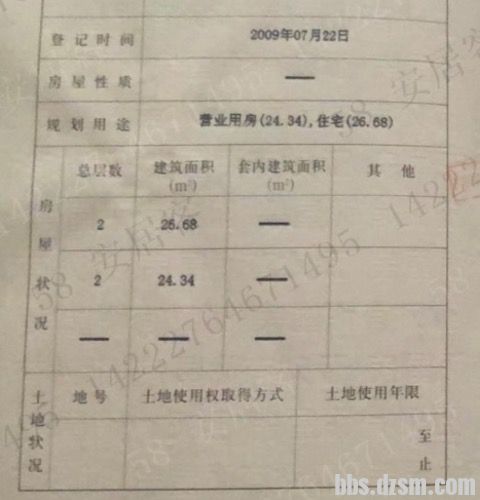 登记时间 2009年07月22日
房屋性质 —
规划用途 营业用房(24.34),住宅(26.68)
房屋状况
总层数 建筑面积(m²) 套内建筑面积(m²) 其他
2 26.68 —
2 24.34 —
— — —
土地状况
地号 土地使用权取得方式 土地使用年限
至
止
58 安居客 14222764671495
bbs.dzsm.com